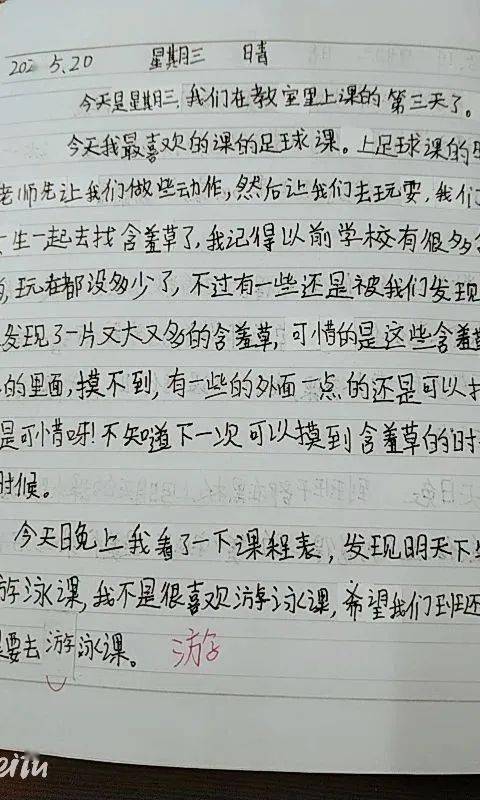 202 5.20 星期三 晴
今天是星期三,我们在教室里上课的第三天了。
今天我最喜欢的课的足球课。上足球课的
老师先让我们做些动作,然后让我们去玩耍,我们
生一起去找含羞草了,我记得以前学校有很多
玩在都没多少了,不过有一些还是被我们发现
发现了一片又大又多的含羞草,可惜的是这些含羞
的里面,摸不到,有一些的外面一点的还是可以
是可惜呀!不知道下一次可以摸到含羞草的的时
时候。
今天晚上我看了一下课程表,发现明天下
游泳课,我不是很喜欢游泳课,希望我们班还
要去游泳课。 游